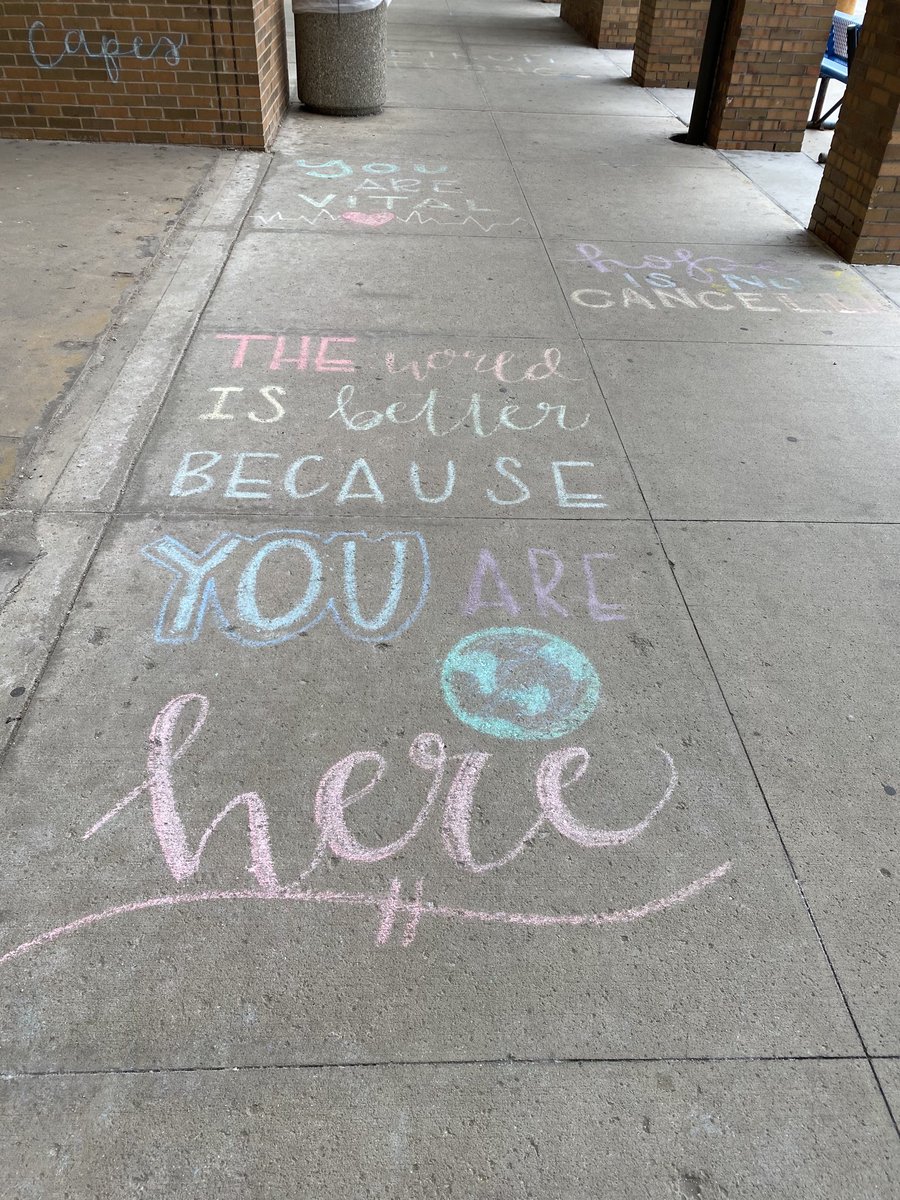 Capes
YOU
ARE
VITAL
hope
IS NOT
CANCELLED
THE world
IS better
BECAUSE
YOU ARE
here